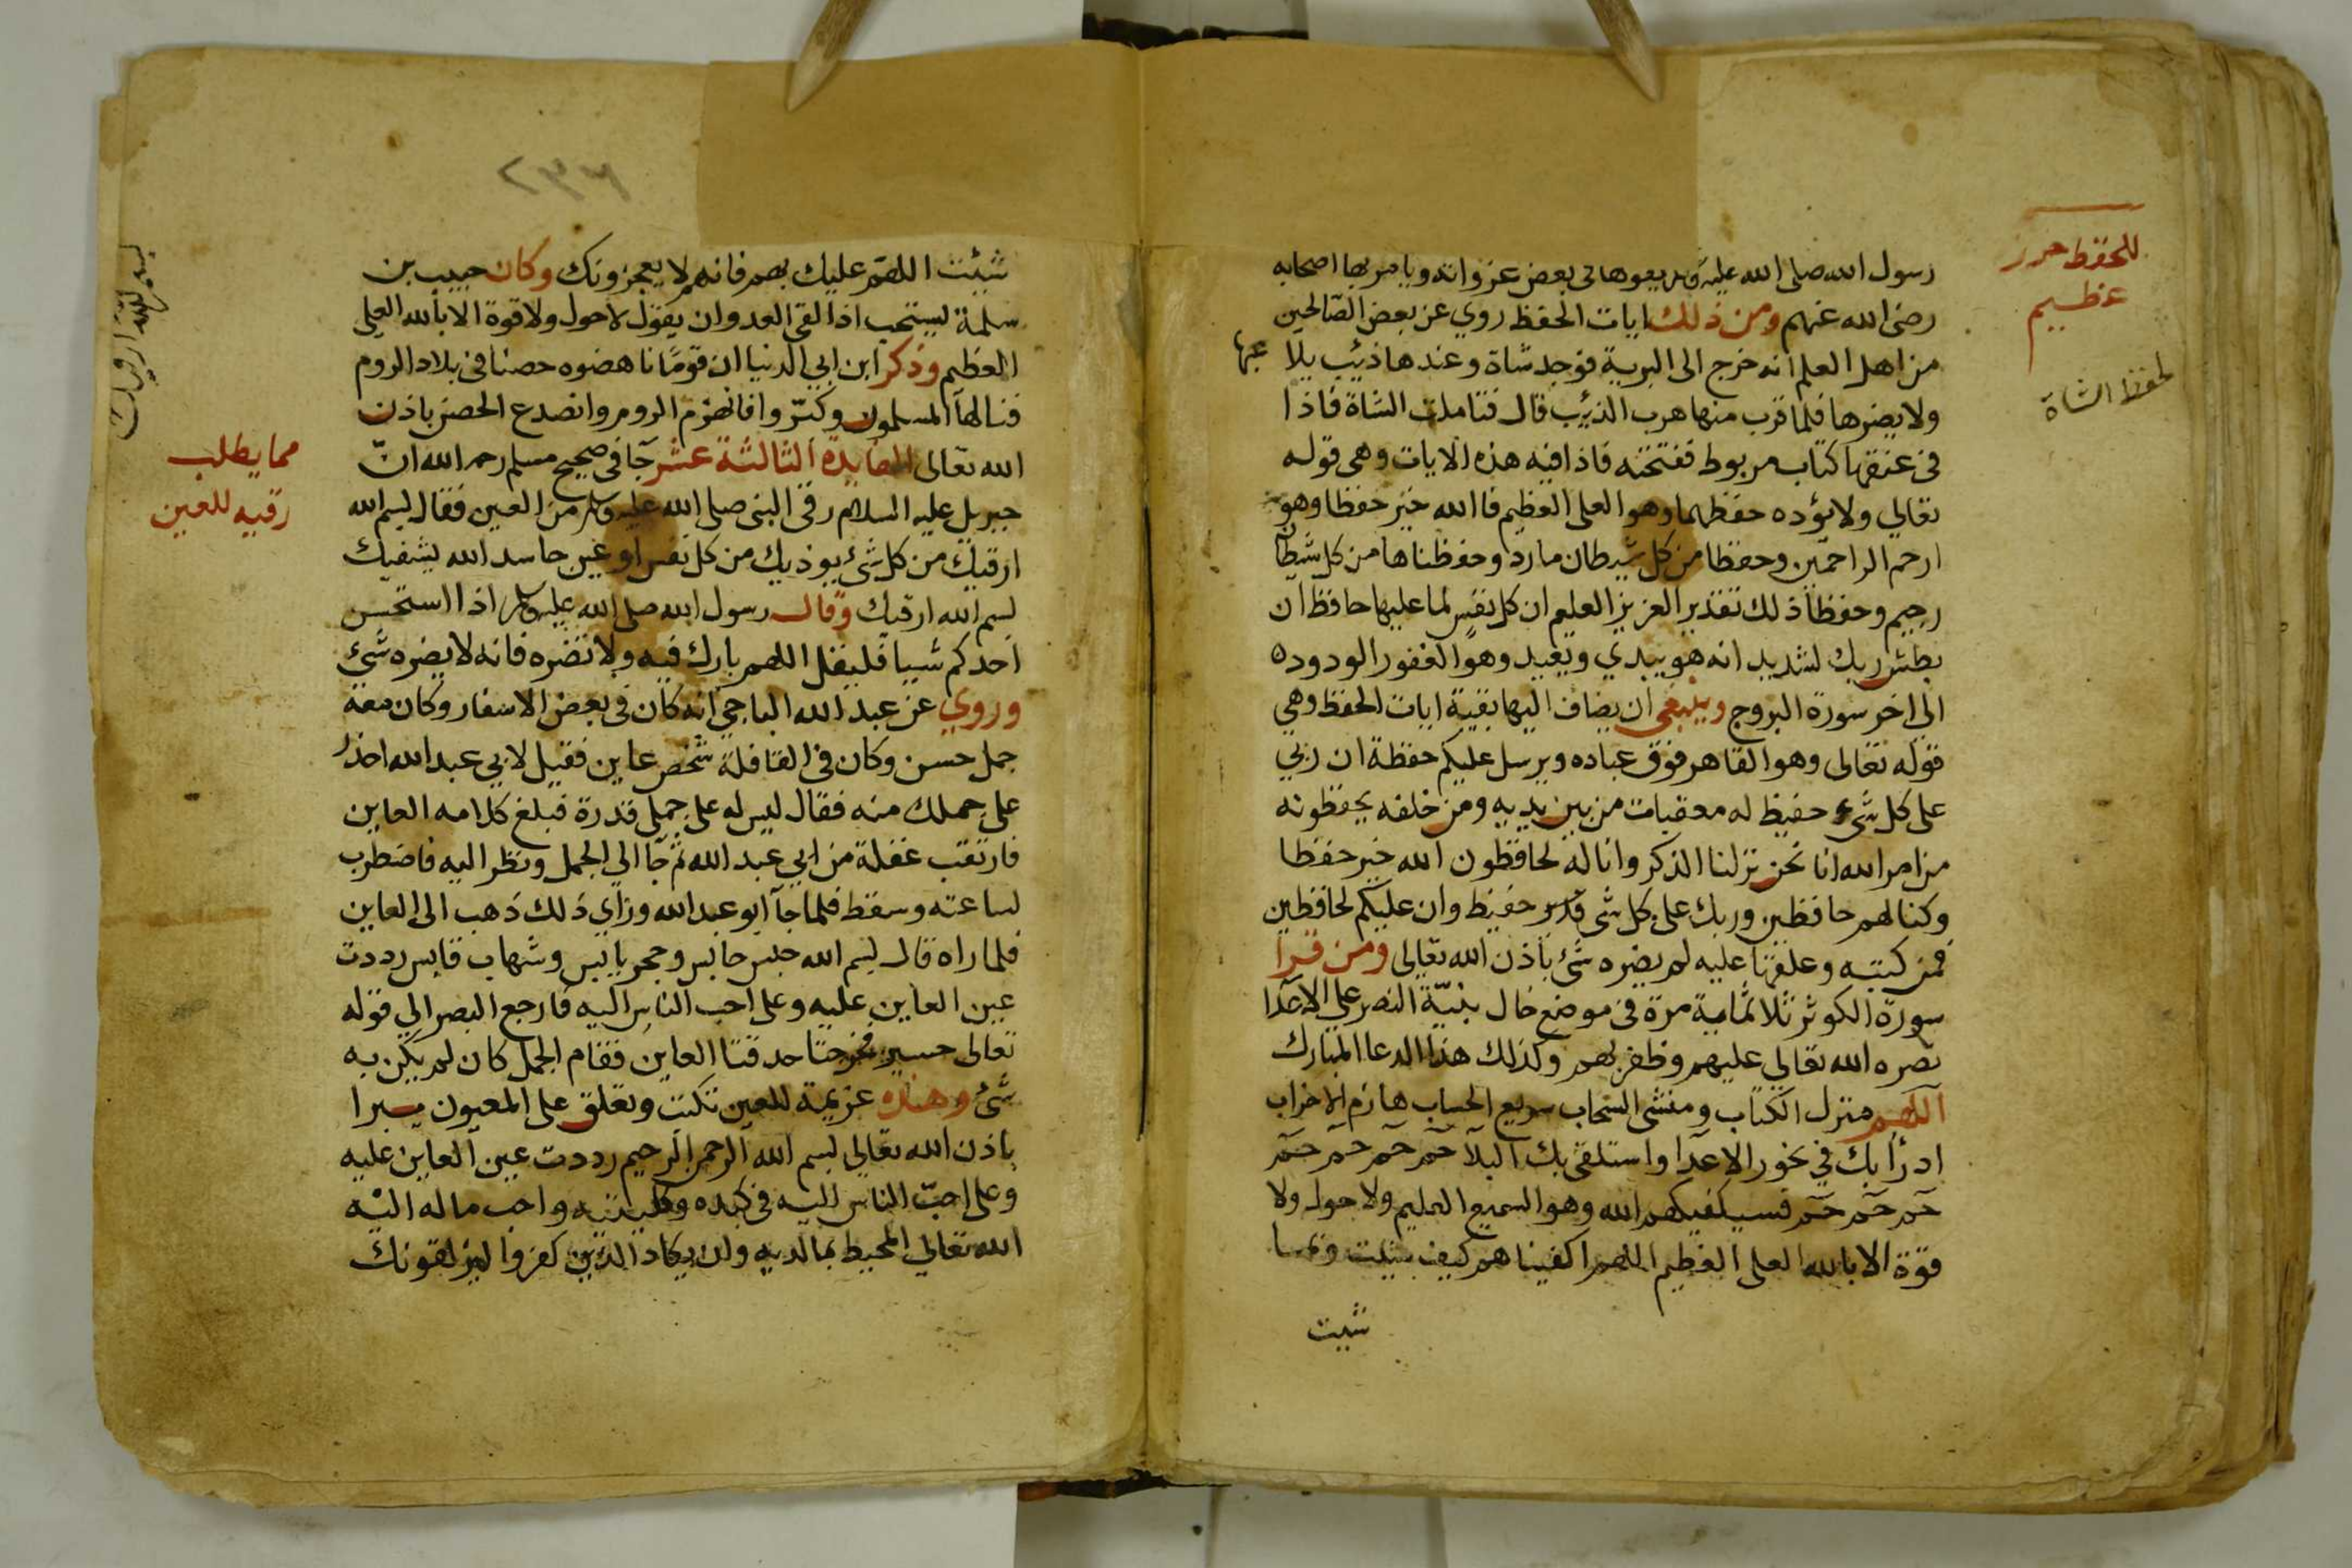 رسول الله صلى الله عليه وسلم يدعوها فى بعض غزواته ويامر بها اصحابه
رضى الله عنهم ومن ذلك ايات الحفظ روي عن بعض الصالحين
من اهل العلم انه خرج الى البرية فوجد شاة وعندها ذيب يلا عبها
ولا يضرها فلما قرب منها هرب الذيب قال فتاملت الشاة فاذا
فى عنقها كتاب مربوط ففتحته فاذا فيه هذه الايات وهى قوله
تعالي ولا يؤده حفظهما وهو العلى العظيم فالله خير حفظا وهو
ارحم الراحمين وحفظا من كل شيطان مارد وحفظناها من كل شيطان
رجيم وحفظا ذلك تقدير العزيز العليم ان كل نفس لما عليها حافظ ان
بطش ربك لشديد انه هو يبدي ويعيد وهو الغفور الودود
الى اخر سورة البروج وينبغى ان يضاف اليها بقية ايات الحفظ وهي
قوله تعالى وهو القاهر فوق عباده ويرسل عليكم حفظة ان ربي
على كل شىء حفيظ له معقبات من بين يديه ومن خلفه يحفظونه
من امر الله انا نحن نزلنا الذكر وانا له لحافظون الله خير حفظا
وكنا لهم حافظين وربك على كل شى حفيظ وان عليكم لحافظين
فمن كتبه وعلقها عليه لم يضره شئ باذن الله تعالى ومن قرا
سورة الكوثر ثلاثماية مرة فى موضع خال بنيّة النصر على الاعدا
نصره الله تعالي عليهم وظفر بهم وكذلك هذا الدعا المبارك
اللهم منزل الكتاب ومنشى السحاب سريع الحساب هازم الاحزاب
ادرأ بك في نحور الاعدا واستلقى بك البلا حم حم حم حم
حم حم حم فسيكفيكهم الله وهو السميع العليم ولا حول ولا
قوة الا بالله العلى العظيم اللهم اكفيناهم كيف شيت وبما
شيت
للحفظ حرز
عظيم
لحفظ الشاة
شئيت اللهم عليك بهم فانهم لا يعجزونك وكان حبيب بن
سلمة يستحب اذا لقى العدو ان يقول لا حول ولا قوة الا بالله العلى
العظيم وذكر ابن ابي الدنيا ان قومًا ناهضوه حصنا فى بلاد الروم
فنالها المسلمون وكبّروا فانهزم الروم وانصدع الحصن باذن
الله تعالى الفايدة الثالثة عشر جا فى صحيح مسلم رحمه الله انّ
جبريل عليه السلام رقى النبى صلى الله عليه وسلم من العين فقال بسم الله
ارقيك من كل شئ يوذيك من كل نفس او عين حاسد الله يشفيك
بسم الله ارقيك وقال رسول الله صلى الله عليه وسلم اذا استحسن
احدكم شييا فليقل اللهم بارك فيه ولا تضره فانه لا يضره شئ
وروي عن عبد الله الباجي انه كان فى بعض الاسفار وكان معه
جمل حسن وكان فى القافلة شخص عاين فقيل لابي عبد الله احذر
على جملك منه فقال ليس له على جملى قدرة فبلغ كلامه العاين
فارتقب غفلة من ابي عبد الله ثم جا الى الجمل ونظر اليه فاضطرب
لساعته وسقط فلما جا ابو عبد الله وراي ذلك ذهب الى العاين
فلما راه قال بسم الله حبس حابس وحجر يابس وشهاب قابس رددت
عين العاين عليه وعلى احب الناس اليه فارجع البصر الي قوله
تعالى حسير فخرجتا حدقتا العاين فقام الجمل كان لم يكن به
شئ وهذه عزيمة للعين تكتب وتعلق على المعيون يبرا
باذن الله تعالى بسم الله الرحمن الرحيم رددت عين العاين عليه
وعلى احبّ الناس اليه فى كبده وكليتيه واحب ماله اليه
الله تعالي المحيط بما لديه وان يكاد الذين كفروا ليزلقونك
مما يطلب
رقيه للعين
بسم الله ارقيك
٢٣٦